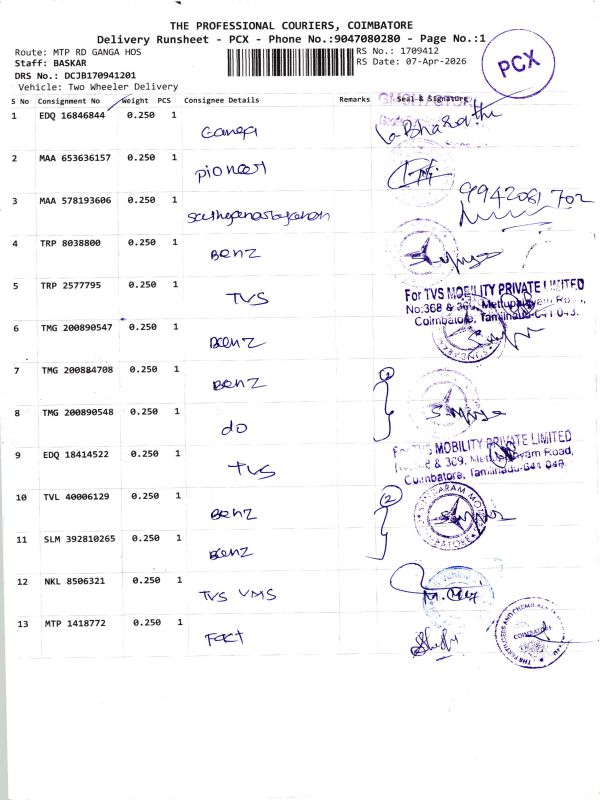 THE PROFESSIONAL COURIERS, COIMBATORE
Delivery Runsheet - PCX - Phone No.:9047080280 - Page No.:1
Route: MTP RD GANGA HOS
RS No.: 1709412
Staff: BASKAR
RS Date: 07-Apr-2026
DRS No.: DCJB170941201
Vehicle: Two Wheeler Delivery
PCX
S No Consignment No Weight PCS Consignee Details Remarks Seal & Signature
1 EDQ 16846844 0.250 1 Ganga
2 MAA 653636157 0.250 1 pioneer
9942081702
3 MAA 578193606 0.250 1
4 TRP 8038800 0.250 1 Benz
5 TRP 2577795 0.250 1 TVS
For TVS MOBILITY PRIVATE LIMITED
No:368 & 369, Mettupalayam Road,
Coimbatore, Tamilnadu-641 043.
6 TMG 200890547 0.250 1 Benz
7 TMG 200884708 0.250 1 Benz
8 TMG 200890548 0.250 1 do
9 EDQ 18414522 0.250 1 TVS
For TVS MOBILITY PRIVATE LIMITED
No:368 & 369, Mettupalayam Road,
Coimbatore, Tamilnadu-641 043.
10 TVL 40006129 0.250 1 Benz
11 SLM 392810265 0.250 1 Benz
12 NKL 8506321 0.250 1 TVS VMS
13 MTP 1418772 0.250 1 Fact